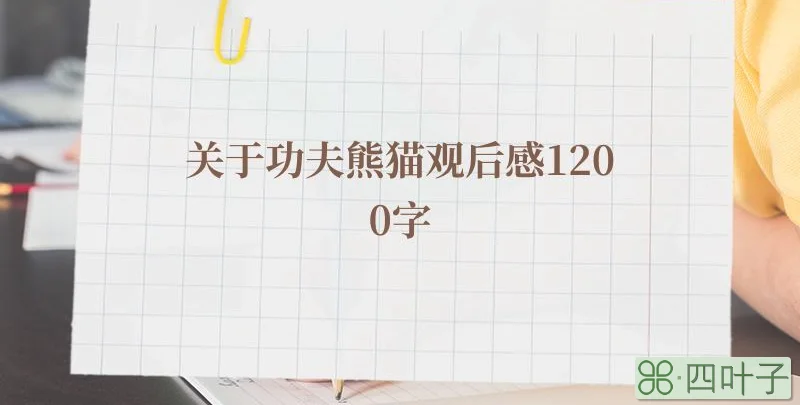 关于功夫熊猫观后感120
0字
四叶子